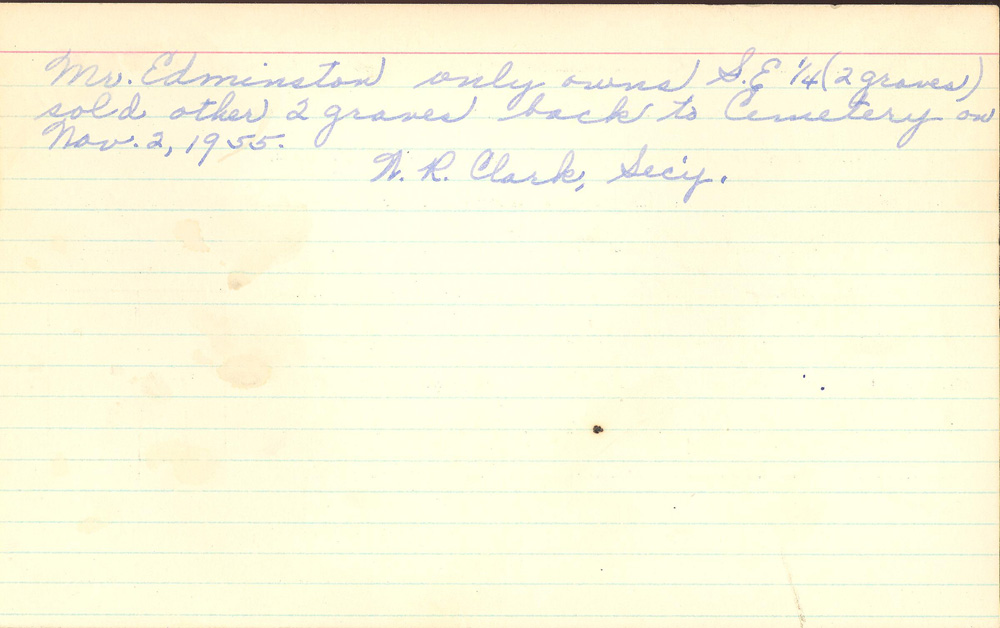 Mr. Edminston only owns S.E 1/4 (2 graves)
sold other 2 graves back to Cemetery on
Nov. 2, 1955.
W. R. Clark, Sec'y.